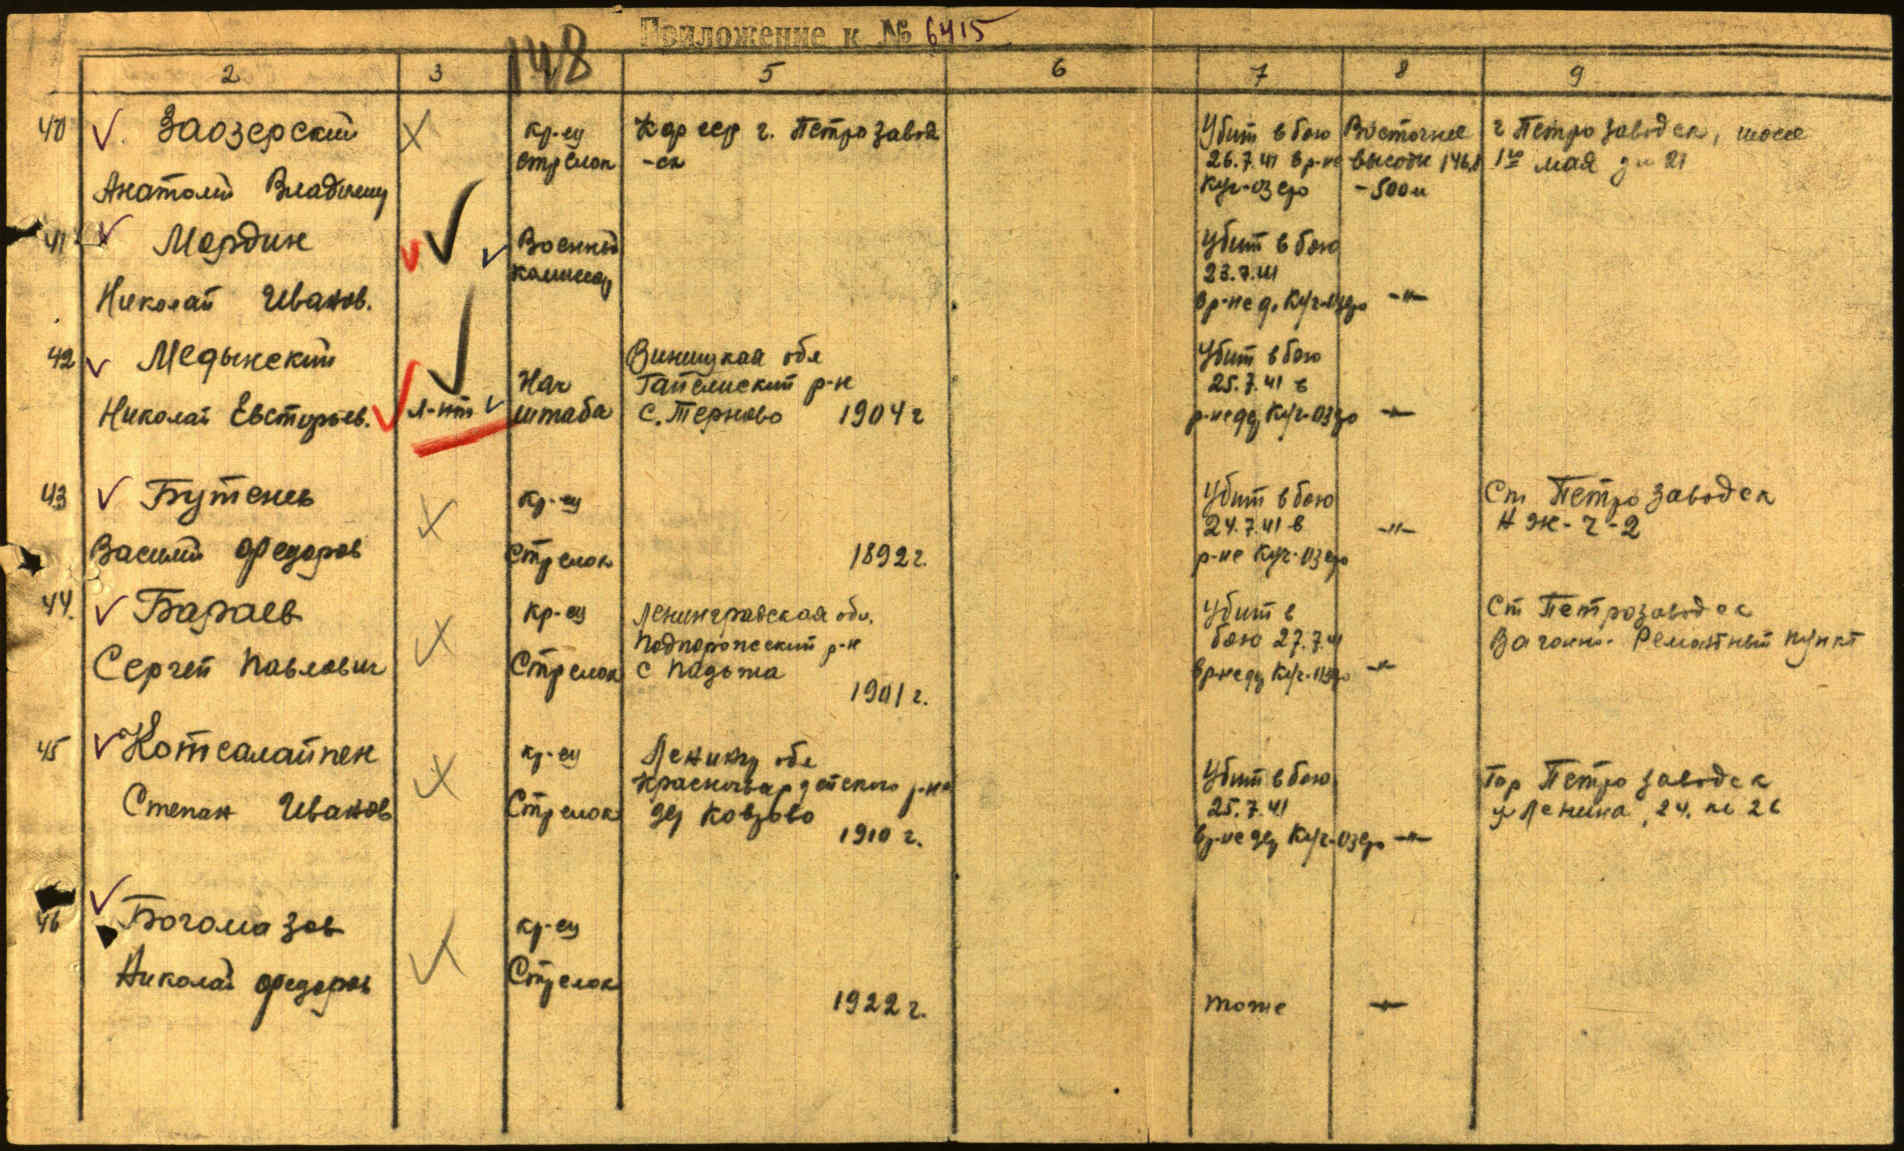 Приложение к № 6415
148
2 3 5 6 7 8 9
40 Заозерский
Анатолий Владимир
кр-ец
стрелок
Кар сср г. Петрозавод
-ск
Убит в бою
26.7.41 в р-не
Куч-озеро
Восточнее
высоты 146,1
-500м
г Петрозаводск, шоссе
1го мая д 21
41 Мардин
Николай Иванов.
Военный
комиссар
Убит в бою
23.7.41
в р-не д. Куч-озеро -"-
42 Медынский
Николай Евстигнев.
л-нт
Нач
штаба
Виницкая обл
р-н
с. Терново 1904 г
Убит в бою
25.7.41 в
р-не дер Куч-озеро -"-
43 Бутенев
Василий Федоров
кр-ец
Стрелок
1892 г.
Убит в бою
24.7.41 в
р-не Куч-озеро
-"-
Ст Петрозаводск
НЖ-Ч-2
44. Бараев
Сергей Павлович
кр-ец
Стрелок
Ленинградская обл.
Подпорожский р-н
с Падьма
1901 г.
Убит в
бою 27.7.41
в р-не дер Куч-озеро -"-
Ст Петрозаводск
Вагонно-Ремонтный пункт
45 Котсалайнен
Степан Иванов
кр-ец
Стрелок
Ленингр обл
Красногвардейского р-на
дер Ковзово
1910 г.
Убит в бою
25.7.41
в р-не дер Куч-озеро -"-
Гор Петрозаводск
у Ленина, 24. кв 26
46 Богомазов
Николай Федоров
кр-ец
Стрелок
1922 г.
тоже -"-